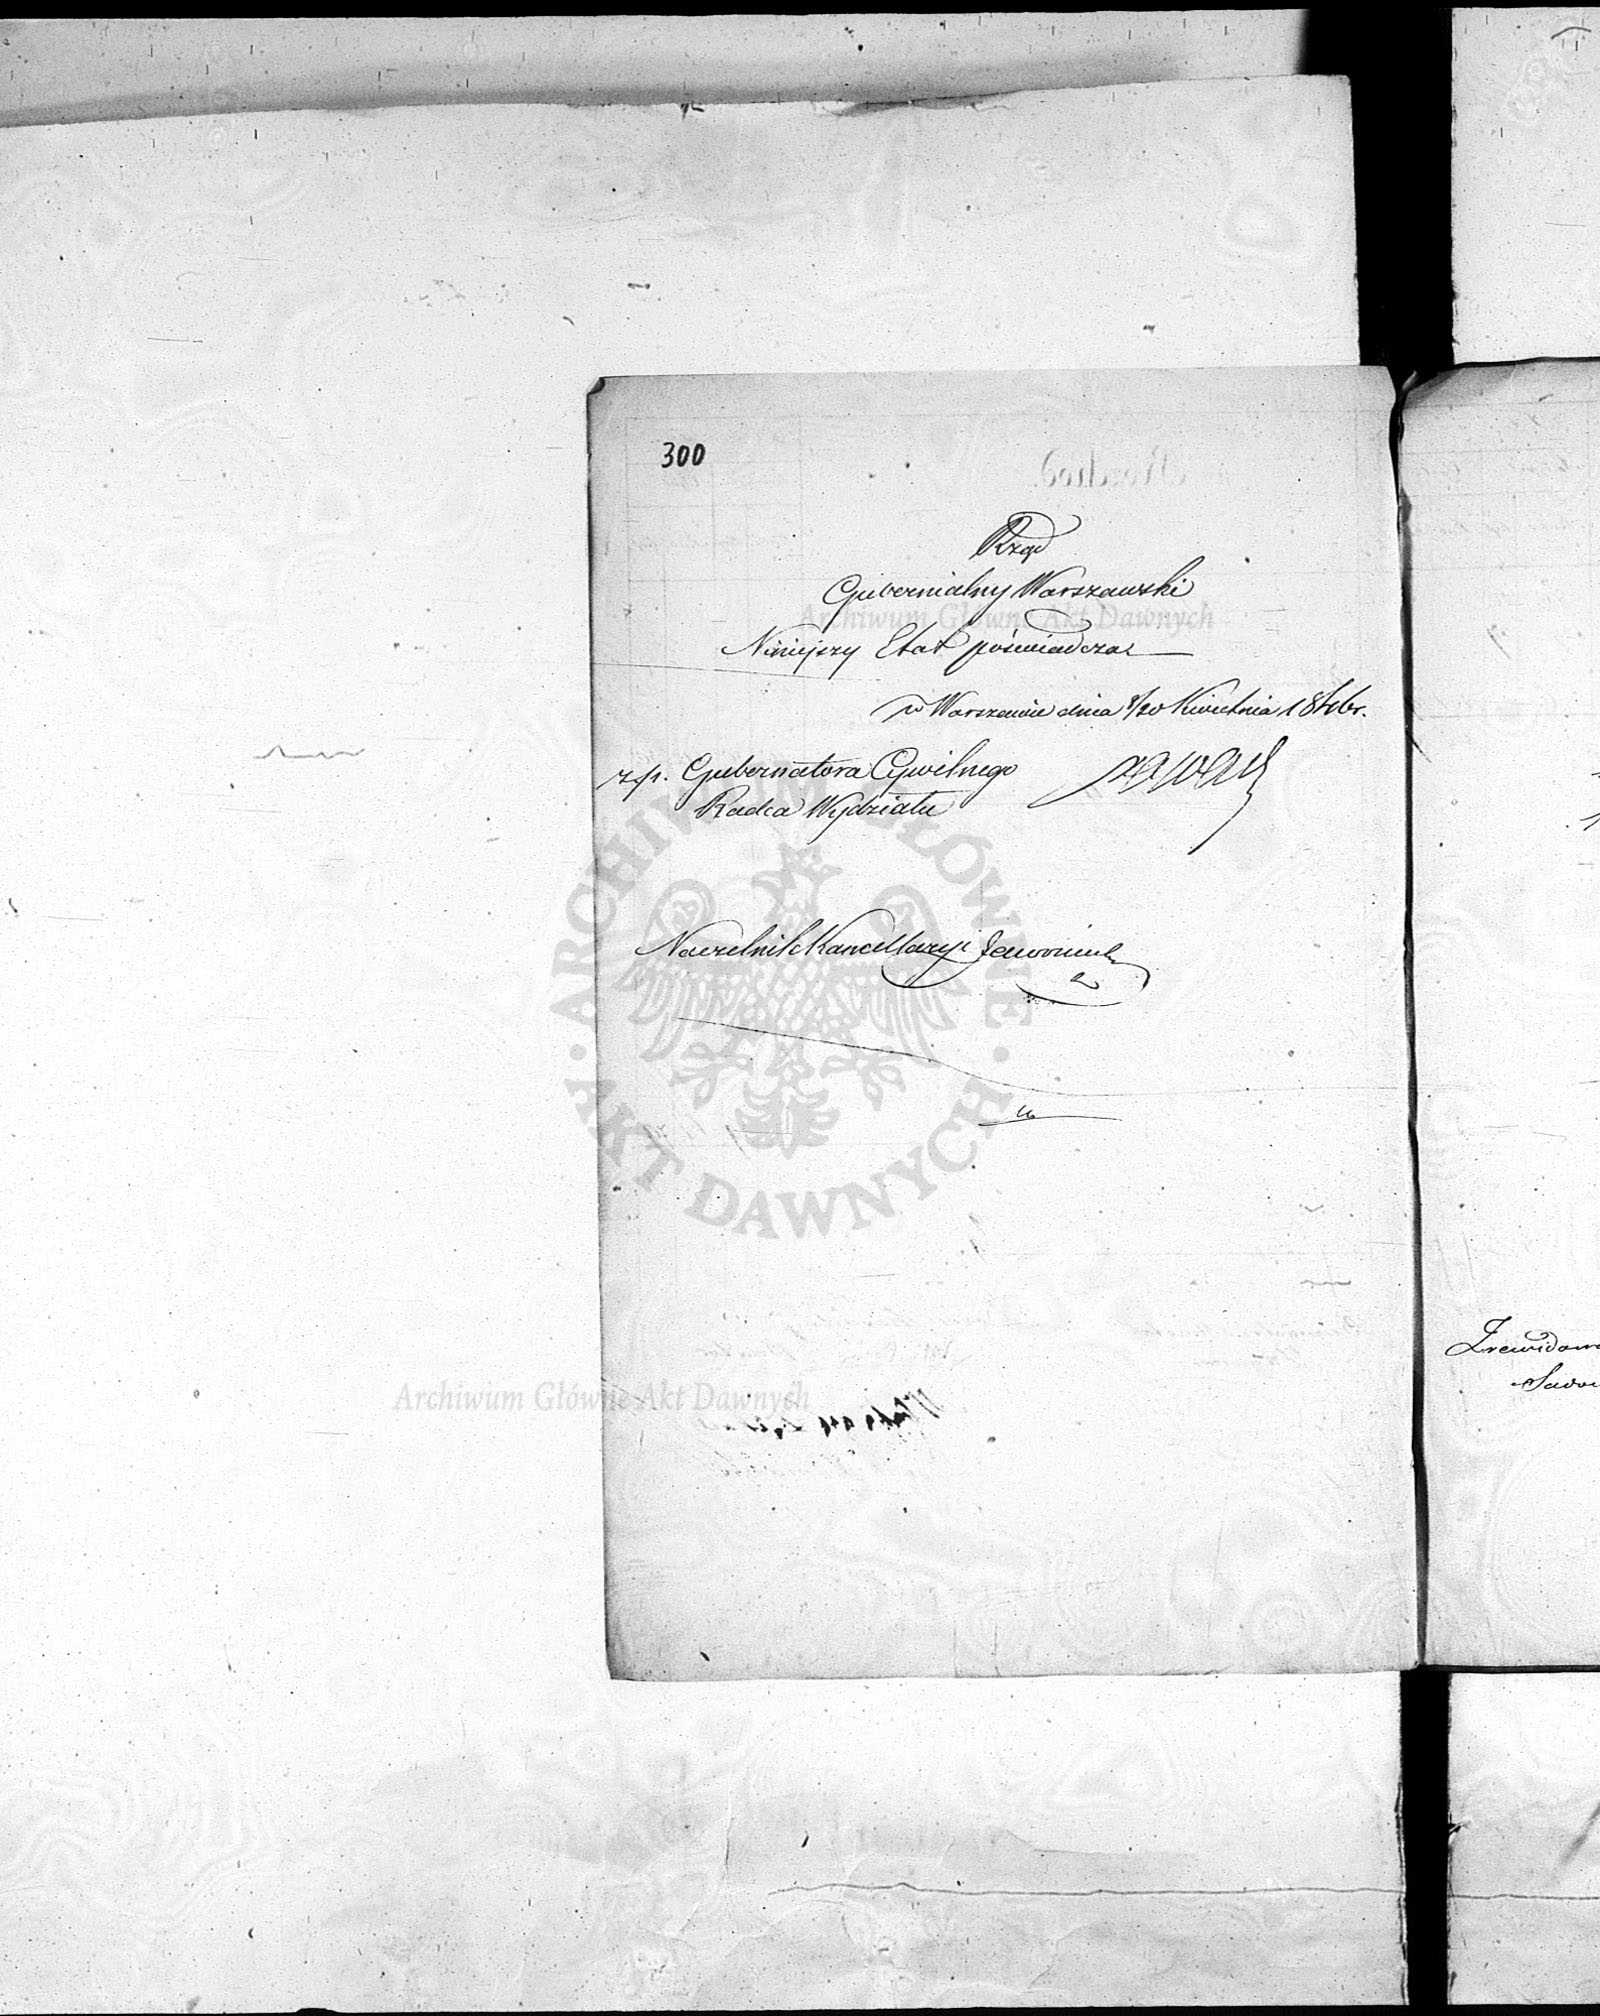 300
Rząd
Gubernialny Warszawski
Niniejszy Etat poświadcza
w Warszawie dnia 8/20 Kwietnia
z/p. Gubernatora Cywilnego
Radca Wydziału
Naczelnik Kancellaryi
Archiwum Główne Akt Dawnych
ARCHIWUM GŁÓWNE · AKT DAWNYCH ·
Archiwum Główne Akt Dawnych
Zrewidowa